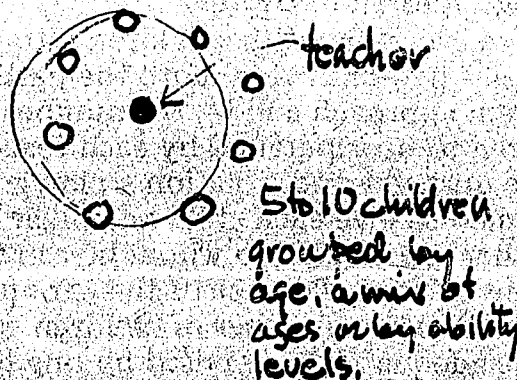 teacher
5 to 10 children
grouped by
age, a mix of
ages or by ability
levels.